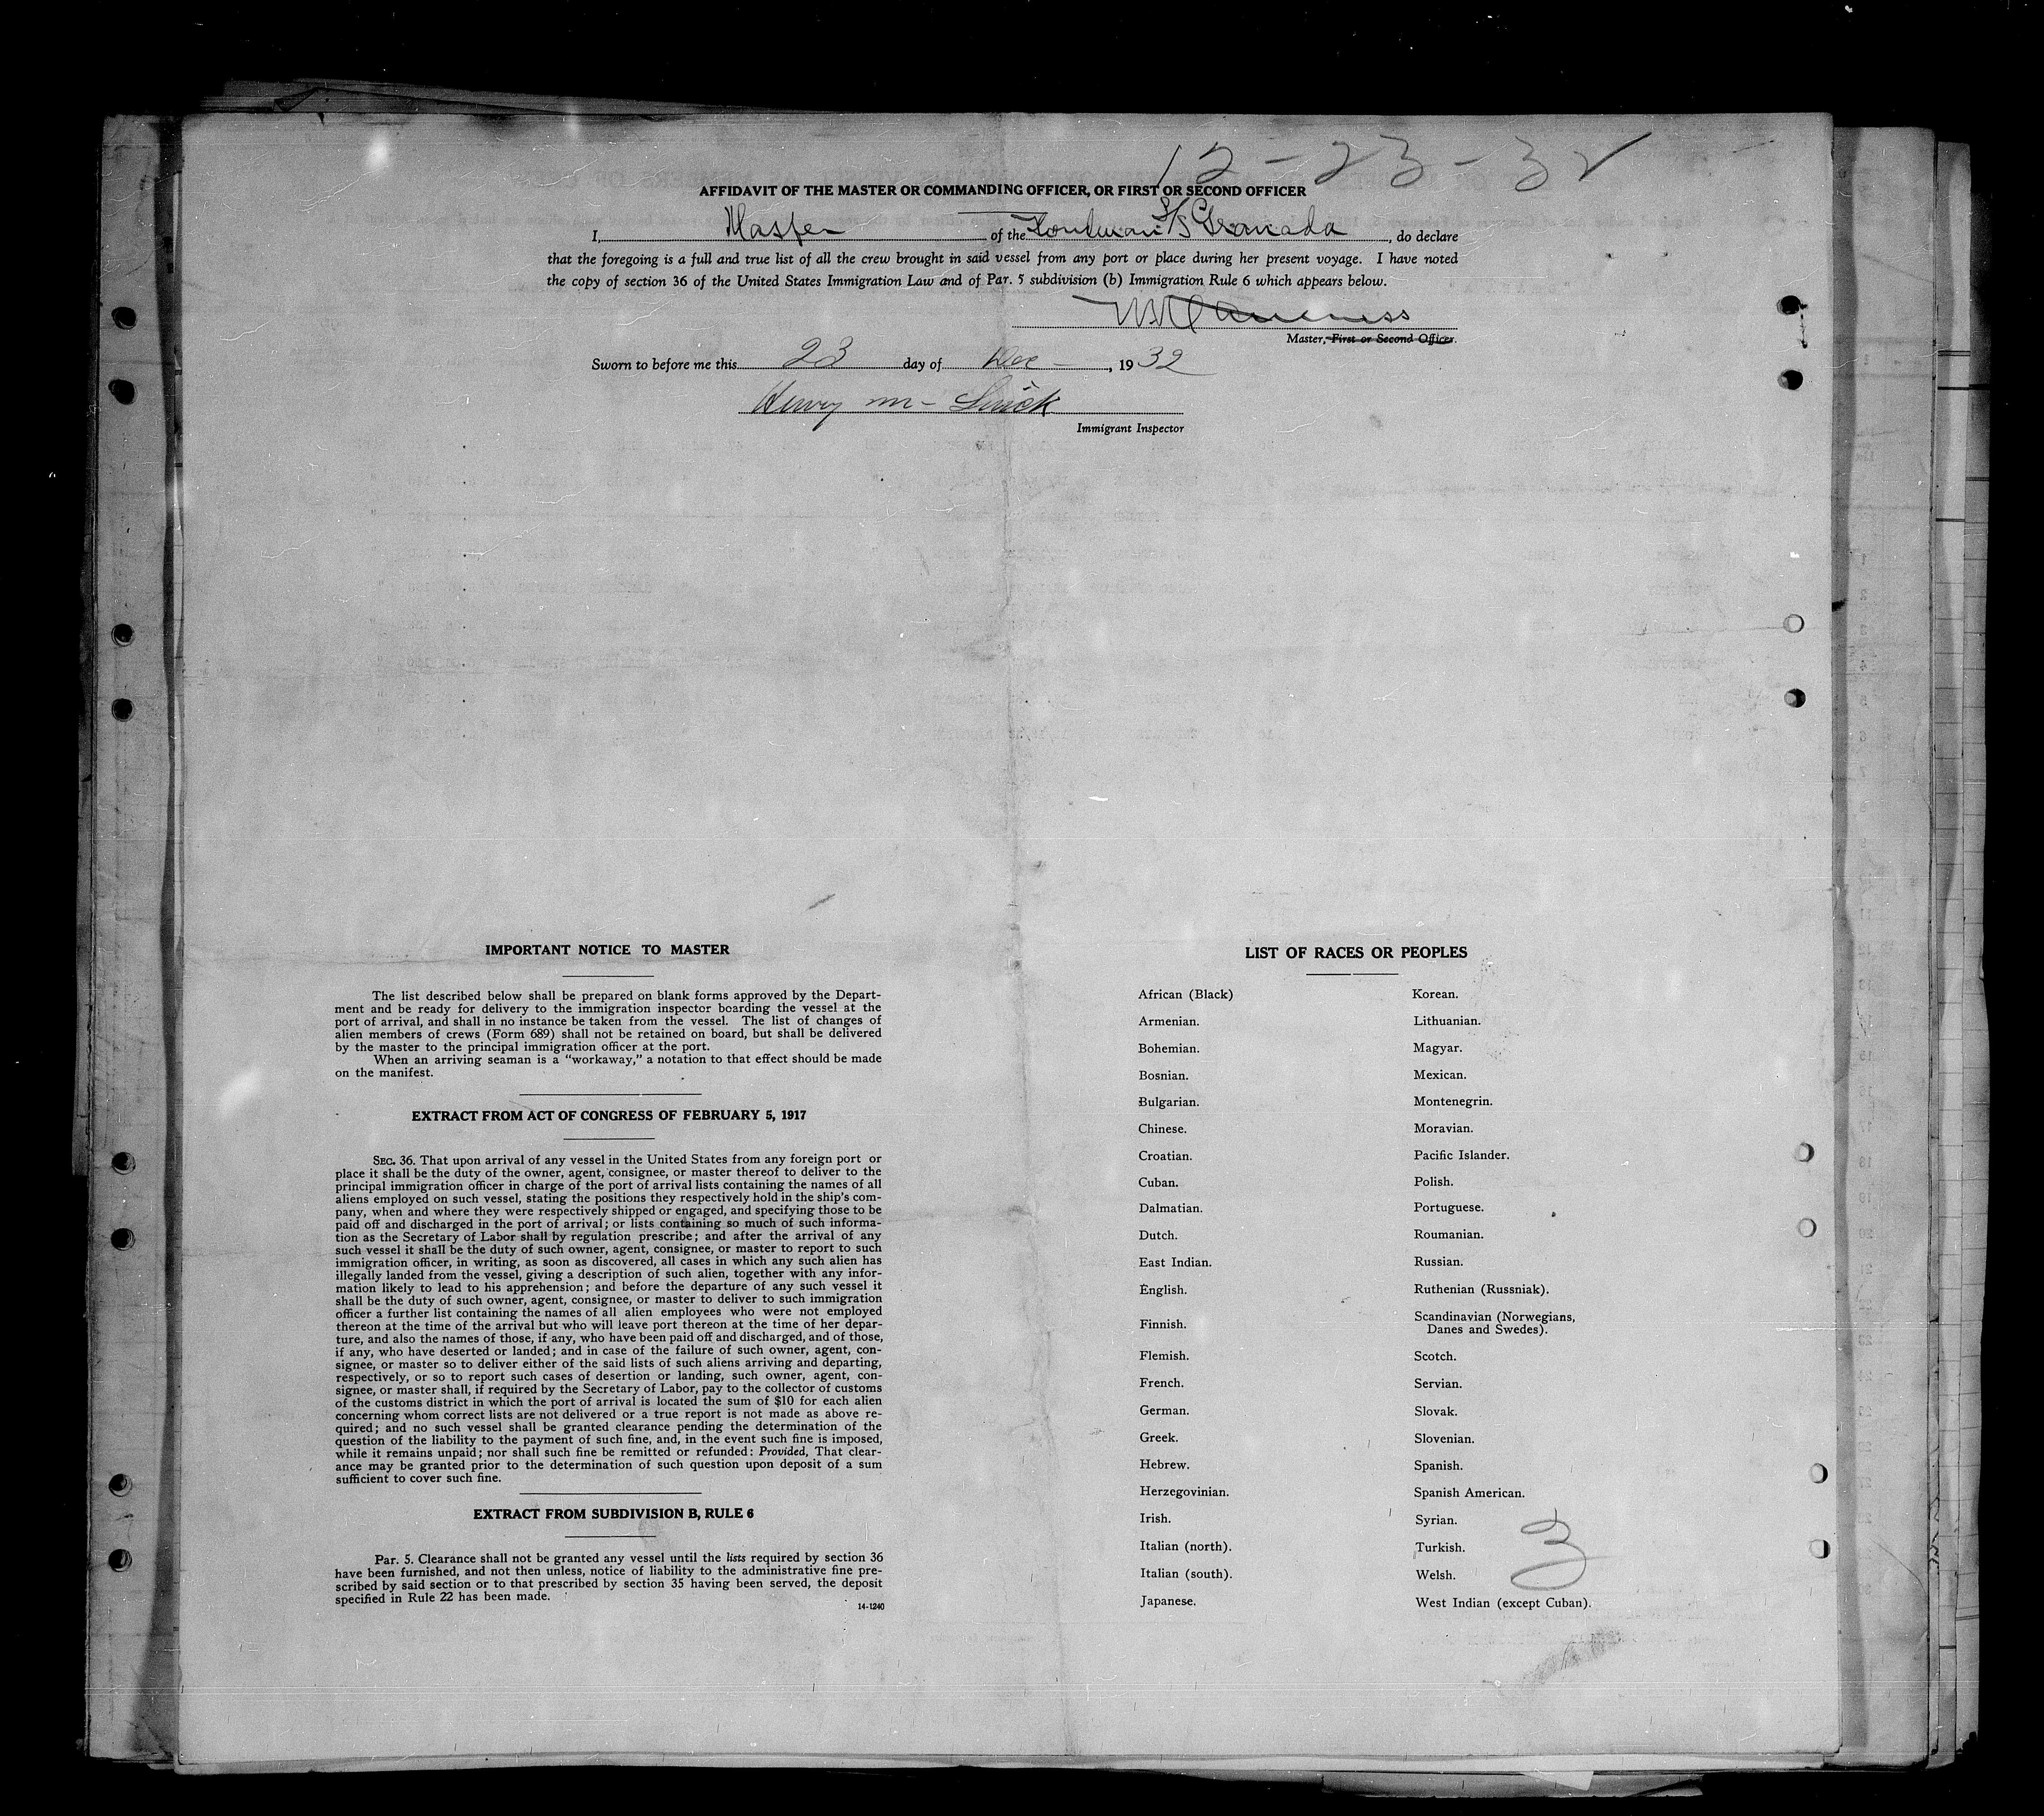 12-23-32
AFFIDAVIT OF THE MASTER OR COMMANDING OFFICER, OR FIRST OR SECOND OFFICER
I, Master of the S/S Granada, do declare
that the foregoing is a full and true list of all the crew brought in said vessel from any port or place during her present voyage. I have noted
the copy of section 36 of the United States Immigration Law and of Par. 5 subdivision (b) Immigration Rule 6 which appears below.
Master, First or Second Officer.
Sworn to before me this 23 day of Dec - , 1932
Henry m-
Immigrant Inspector
IMPORTANT NOTICE TO MASTER
The list described below shall be prepared on blank forms approved by the Depart-
ment and be ready for delivery to the immigration inspector boarding the vessel at the
port of arrival, and shall in no instance be taken from the vessel. The list of changes of
alien members of crews (Form 689) shall not be retained on board, but shall be delivered
by the master to the principal immigration officer at the port.
When an arriving seaman is a "workaway," a notation to that effect should be made
on the manifest.
EXTRACT FROM ACT OF CONGRESS OF FEBRUARY 5, 1917
SEC. 36. That upon arrival of any vessel in the United States from any foreign port or
place it shall be the duty of the owner, agent, consignee, or master thereof to deliver to the
principal immigration officer in charge of the port of arrival lists containing the names of all
aliens employed on such vessel, stating the positions they respectively hold in the ship's com-
pany, when and where they were respectively shipped or engaged, and specifying those to be
paid off and discharged in the port of arrival; or lists containing so much of such informa-
tion as the Secretary of Labor shall by regulation prescribe; and after the arrival of any
such vessel it shall be the duty of such owner, agent, consignee, or master to report to such
immigration officer, in writing, as soon as discovered, all cases in which any such alien has
illegally landed from the vessel, giving a description of such alien, together with any infor-
mation likely to lead to his apprehension; and before the departure of any such vessel it
shall be the duty of such owner, agent, consignee, or master to deliver to such immigration
officer a further list containing the names of all alien employees who were not employed
thereon at the time of the arrival but who will leave port thereon at the time of her depar-
ture, and also the names of those, if any, who have been paid off and discharged, and of those,
if any, who have deserted or landed; and in case of the failure of such owner, agent, con-
signee, or master so to deliver either of the said lists of such aliens arriving and departing,
respectively, or so to report such cases of desertion or landing, such owner, agent, con-
signee, or master shall, if required by the Secretary of Labor, pay to the collector of customs
of the customs district in which the port of arrival is located the sum of $10 for each alien
concerning whom correct lists are not delivered or a true report is not made as above re-
quired; and no such vessel shall be granted clearance pending the determination of the
question of the liability to the payment of such fine, and, in the event such fine is imposed,
while it remains unpaid; nor shall such fine be remitted or refunded: Provided, That clear-
ance may be granted prior to the determination of such question upon deposit of a sum
sufficient to cover such fine.
EXTRACT FROM SUBDIVISION B, RULE 6
Par. 5. Clearance shall not be granted any vessel until the lists required by section 36
have been furnished, and not then unless, notice of liability to the administrative fine pre-
scribed by said section or to that prescribed by section 35 having been served, the deposit
specified in Rule 22 has been made.
14-1240
LIST OF RACES OR PEOPLES
African (Black)
Armenian.
Bohemian.
Bosnian.
Bulgarian.
Chinese.
Croatian.
Cuban.
Dalmatian.
Dutch.
East Indian.
English.
Finnish.
Flemish.
French.
German.
Greek.
Hebrew.
Herzegovinian.
Irish.
Italian (north).
Italian (south).
Japanese.
Korean.
Lithuanian.
Magyar.
Mexican.
Montenegrin.
Moravian.
Pacific Islander.
Polish.
Portuguese.
Roumanian.
Russian.
Ruthenian (Russniak).
Scandinavian (Norwegians,
Danes and Swedes).
Scotch.
Servian.
Slovak.
Slovenian.
Spanish.
Spanish American.
Syrian.
Turkish.
Welsh.
West Indian (except Cuban).
3